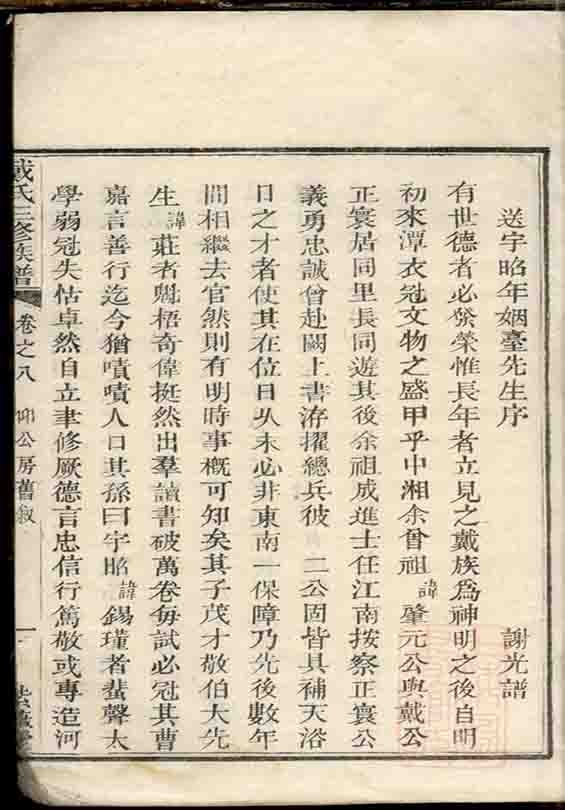 送宇昭年姻臺先生序
謝光譜
有世德者必緊榮惟長年者立見之戴族為神明之後自明
初來潭衣冠文物之盛甲乎中湘余曾祖諱肇元公與戴公
正寰居同里長同遊其後余祖成進士任江南按察正寰公
義勇忠誠曾赴闕上書洊擢總兵彼 二公固皆具補天浴
日之才者使其在位日久未必非東南一保障乃先後數年
間相繼去官然則有明時事概可知矣其子茂才敬伯大先
生諱莊者魁梧奇偉挺然出羣讀書破萬卷每試必冠其曹
嘉言善行迄今猶嘖嘖人口其孫曰宇昭諱錫瑾者蜚聲太
學弱冠失怙卓然自立聿修厥德言忠信行篤敬或專造河
戴氏三修族譜
卷之八
仰公房舊敘
一